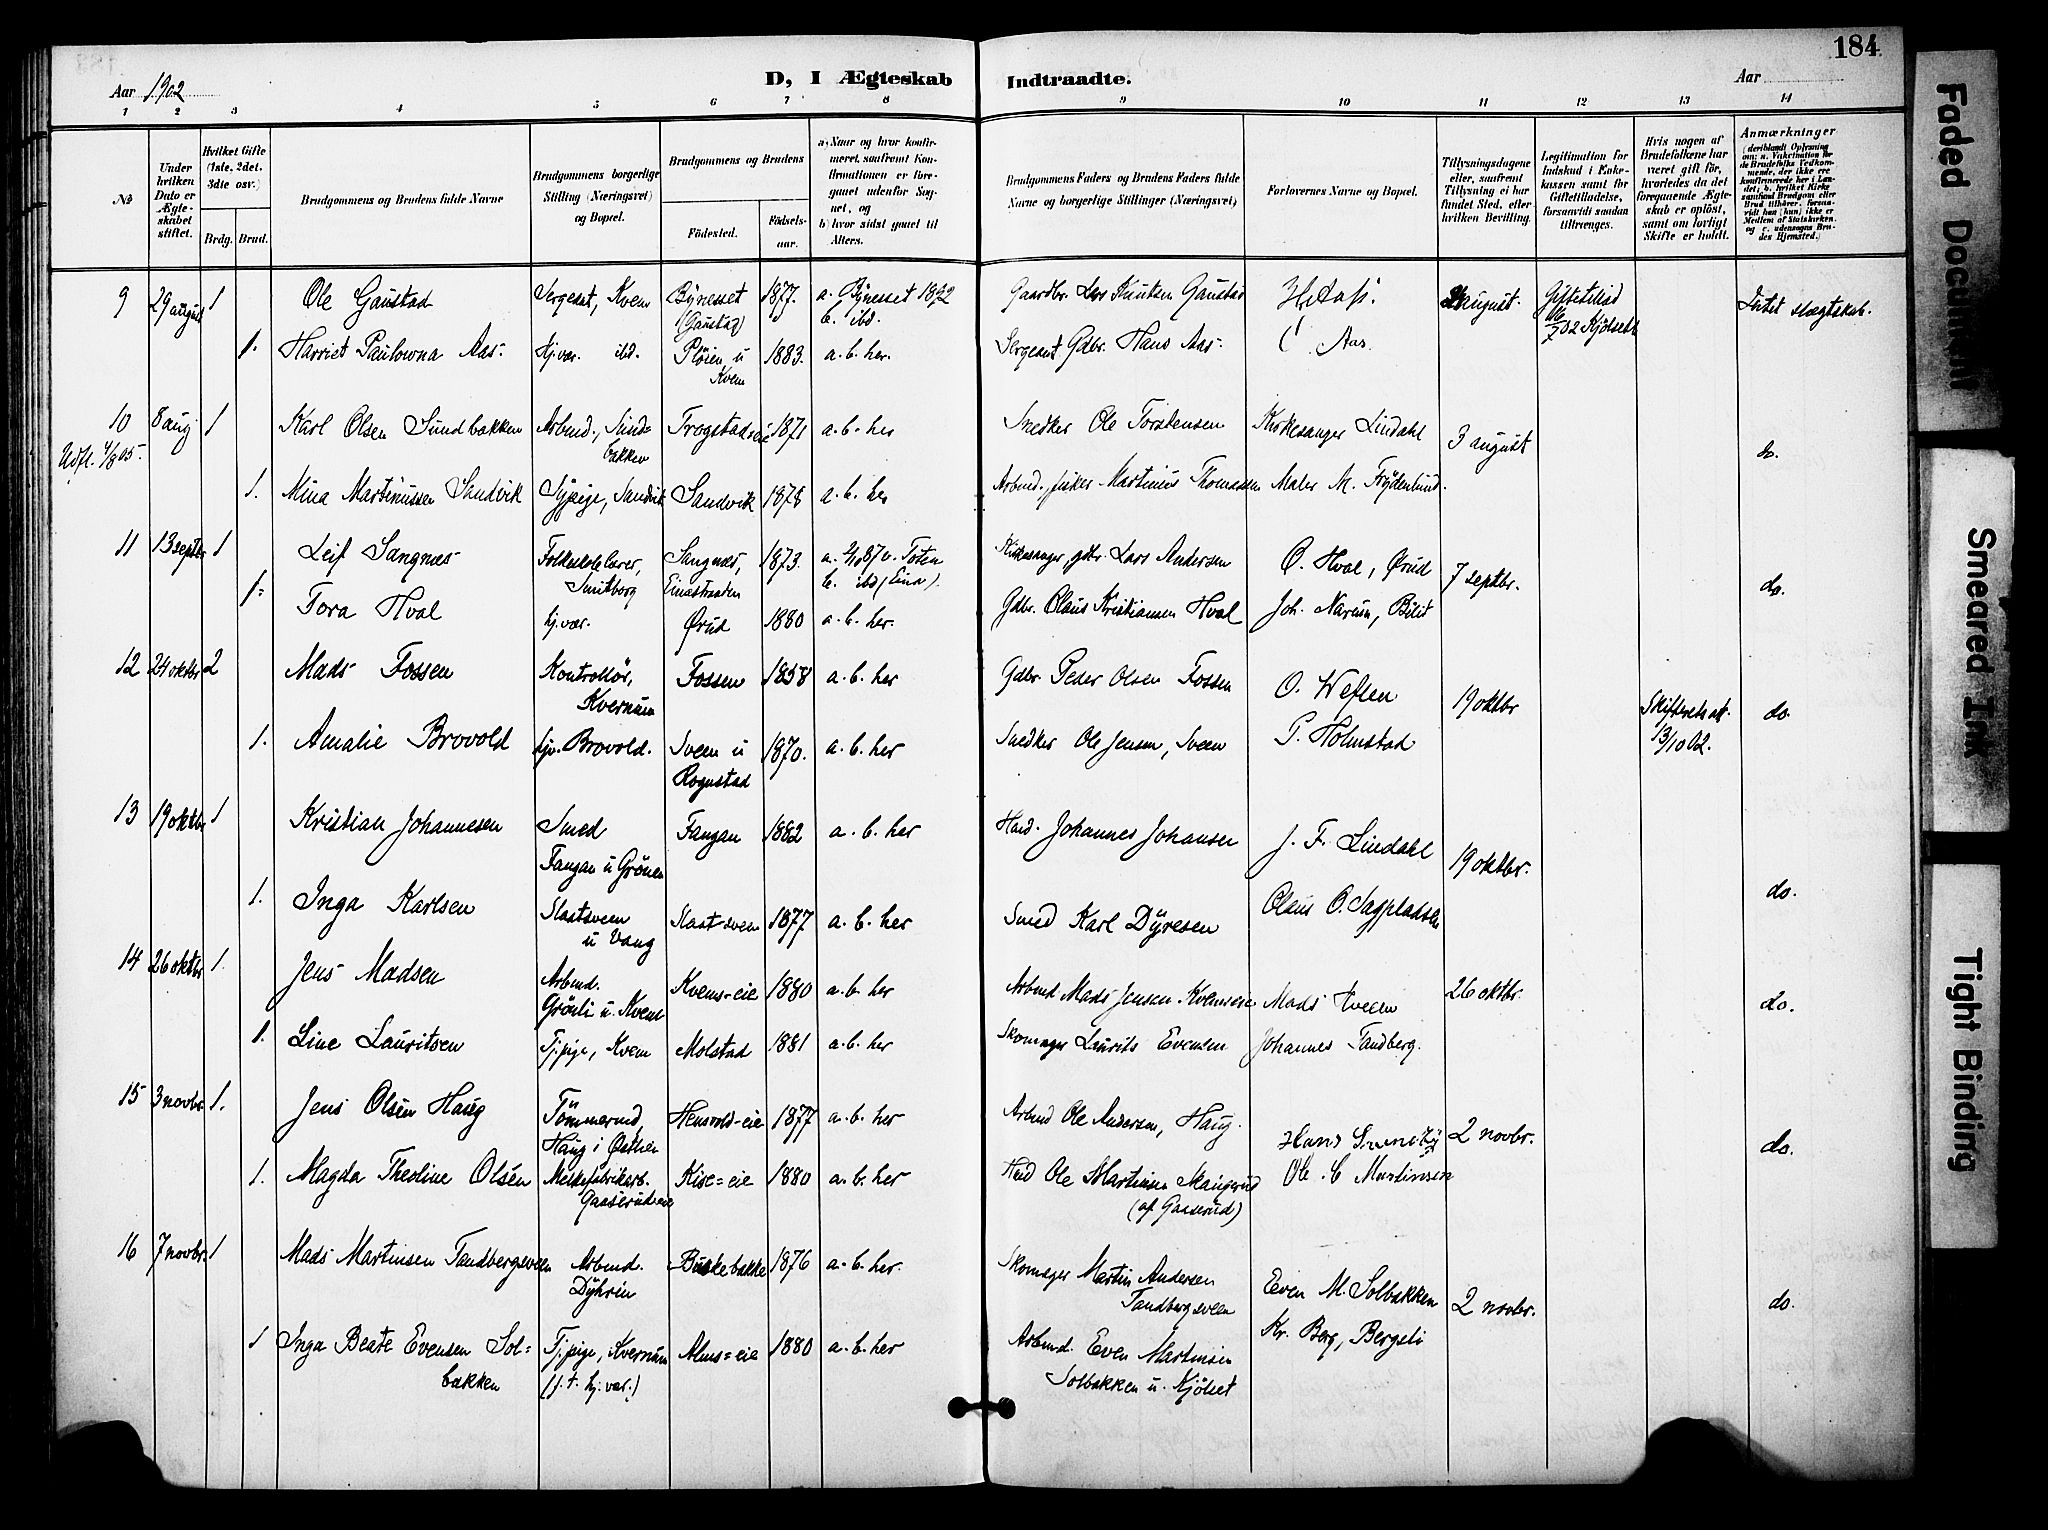 184
Aar 1902
D, I Ægteskab
Indtraadte.
Aar
1 2 3 4 5 6 7 8 9 10 11 12 13 14
No
Under hvilken Dato er Ægteskabet stiftet.
Hvilket Gifte (1ste, 2det, 3die osv.)
Brdg. Brud.
Brudgommens og Brudens fulde Navne
Brudgommens borgerlige Stilling (Næringsvei) og Bopæl.
Brudgommens og Brudens
Fødested.
Fødselsaar.
a) Naar og hvor konfirmeret, saafremt Konfirmationen er foregaaet udenfor Sognet, og
b) hvor sidst gaaet til Alters.
Brudgommens Faders og Brudens Faders fulde Navne og borgerlige Stillinger (Næringsvei)
Forlovernes Navne og Bopæl.
Tillysningsdagene eller, saafremt Tillysning ei har fundet Sted, efter hvilken Bevilling.
Legitimation for Indskud i Enkekassen samt for Giftetilladelse, forsaavidt saadan tiltrænges.
Hvis nogen af Brudefolkene har været gift før, hvorledes da det foregaaende Ægteskab er opløst, samt om lovligt Skifte er holdt.
Anmærkninger
(deriblandt Oplysning om: a. Vakcination for de Brudefolks Vedkommende, der ikke ere konfirmerede her i Landet; b. hvilket Kirkesamfund Brudgom eller Brud tilhører, forsaavidt han (hun) ikke er Medlem af Statskirken, og c. udensogns Brudes Hjemsted.)
9 29 august 1 Ole Gaustad Sergeant, Kvem Bynesset (Gaustad) 1877. a. Bynesset 1892 b. ibd. Gaardbr. Lars Knutsen Gaustad H. Aas. august. Giftetillad 7 02 Kjölseth Intet slægtskab.
1. Harriet Paulowna Aas. Hj.vær. ibd. Pløien u Kvem 1883. a. b. her. Sergeant Gdbr. Hans Aas. Aas.
10 8 aug 1 Karl Olsen Sundbakken Arbmd., Sundbakken Trogstadeie 1871 a. b. her Snedker Ole Torstensen Kirkesanger Lindahl 3 august do.
Udfl. 4/8 05.
1. Mina Martinussen Sandvik Sypige, Sandvik Sandvik 1878 a. b. her Arbmd. fisker Martinius Thomassen Maler M. Frydenlund.
11 13 septbr 1 Leif Sangnæs Folkeskolelærer, Smitborg Sangnæs, Einastranden 1873. a. 2/10 87 V. Toten b. ibd (Eina). Kirkesanger, gdbr. Lars Andersen O. Hval, Ørud 7 septbr. do.
1. Tora Hval hj.vær. Ørud 1880 a. b. her. Gdbr. Claus Kristiansen Hval Joh. Narum, Bilit
12 24 oktbr 2 Mads Fossen Kontrollør, Kvernum Fossen 1858 a. b. her Gdbr. Peder Olsen Fossen O. Weflen 19 oktbr Skifteretsatt. 13/10 02. do.
1. Amalie Brovold hjv. Brovold. Sveen u Rognstad 1870. a. b. her Snedker Ole Jensen, Sveen P. Holmstad
13 19 oktbr 1 Kristian Johannesen Smed Fangan u Grönen Fangan 1882 a. b. her Hmd. Johannes Johansen J. F. Lindahl 19 oktbr. do.
1. Inga Karlsen Slaatsveen u Vang Slaatsveen 1877 a. b. her Smed Karl Dyresen Olaus O. Sagpladsen
14 26 oktbr 1. Jens Madsen Arbmd. Grönli u. Kvem Kvems-eie 1880 a. b. her Arbmd Mads Jensen Kvemseie Mads Tveen 26 oktbr. do.
1. Line Lauritsen Tj.pige, Kvem Molstad 1881 a. b. her Skomager Laurits Evensen Johannes Tandberg.
15 3 novbr. 1. Jens Olsen Haug Tömmermd, Haug i Østlien Hensvold-eie 1877 a. b. her Arbmd Ole Andersen, Haug. Hans 2 novbr. do.
1. Magda Theoline Olsen Melkefabrikarb. Gaaserudeie Kise-eie 1880 a. b. her Hmd Ole Martinsen Maugerud (af Gaaserud) Ole C Martinsen
16 7 novbr. 1 Mads Martinsen Tandbergsveen Arbmd. Dyhrin Buskebakke 1876 a. b. her. Skomager Martin Andersen Tandbergsveen Even M. Solbakken 2 novbr. do.
1 Inga Beate Evensen Solbakken Tj.pige, Kvernum (f. t. hj.vær.) Alms-eie 1880 a. b. her Arbmd. Even Martinsen Solbakken u. Kjölset Kr. Berg, Bergsli
Faded Document
Smeared Ink
Tight Binding